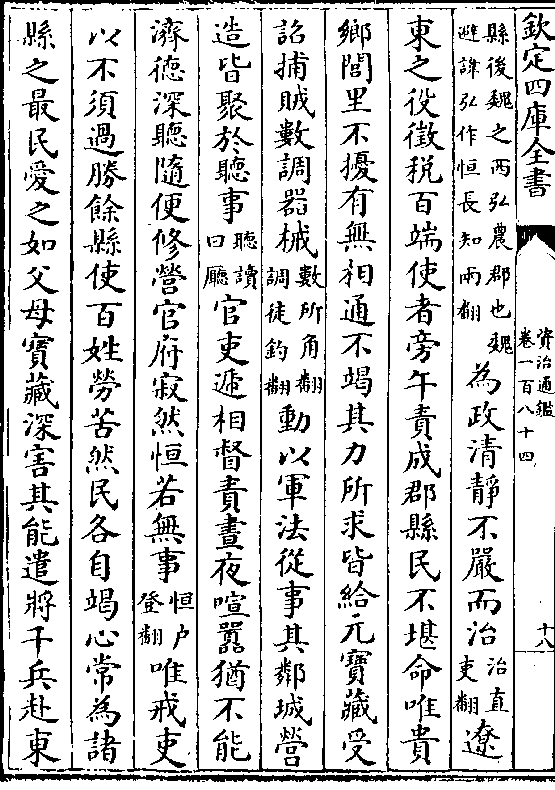 欽定四庫全書
資治通鑑
卷一百八十四
十八
縣後魏之西弘農郡也魏避諱弘作恒長知兩翻為政清靜不嚴而治治直吏翻遼
東之役徵税百端使者旁午責成郡縣民不堪命唯貴
鄉閭里不擾有無相通不竭其力所求皆給元寶藏受
詔捕賊數調器械數所角翻調徒釣翻動以軍法從事其鄰城營
造皆聚於聽事聽讀曰廳官吏遞相督責晝夜喧囂猶不能
濟德深聽隨便修營官府寂然恒若無事恒户登翻唯戒吏
以不須過勝餘縣使百姓勞苦然民各自竭心常為諸
縣之最民愛之如父母寶藏深害其能遣將千兵赴東